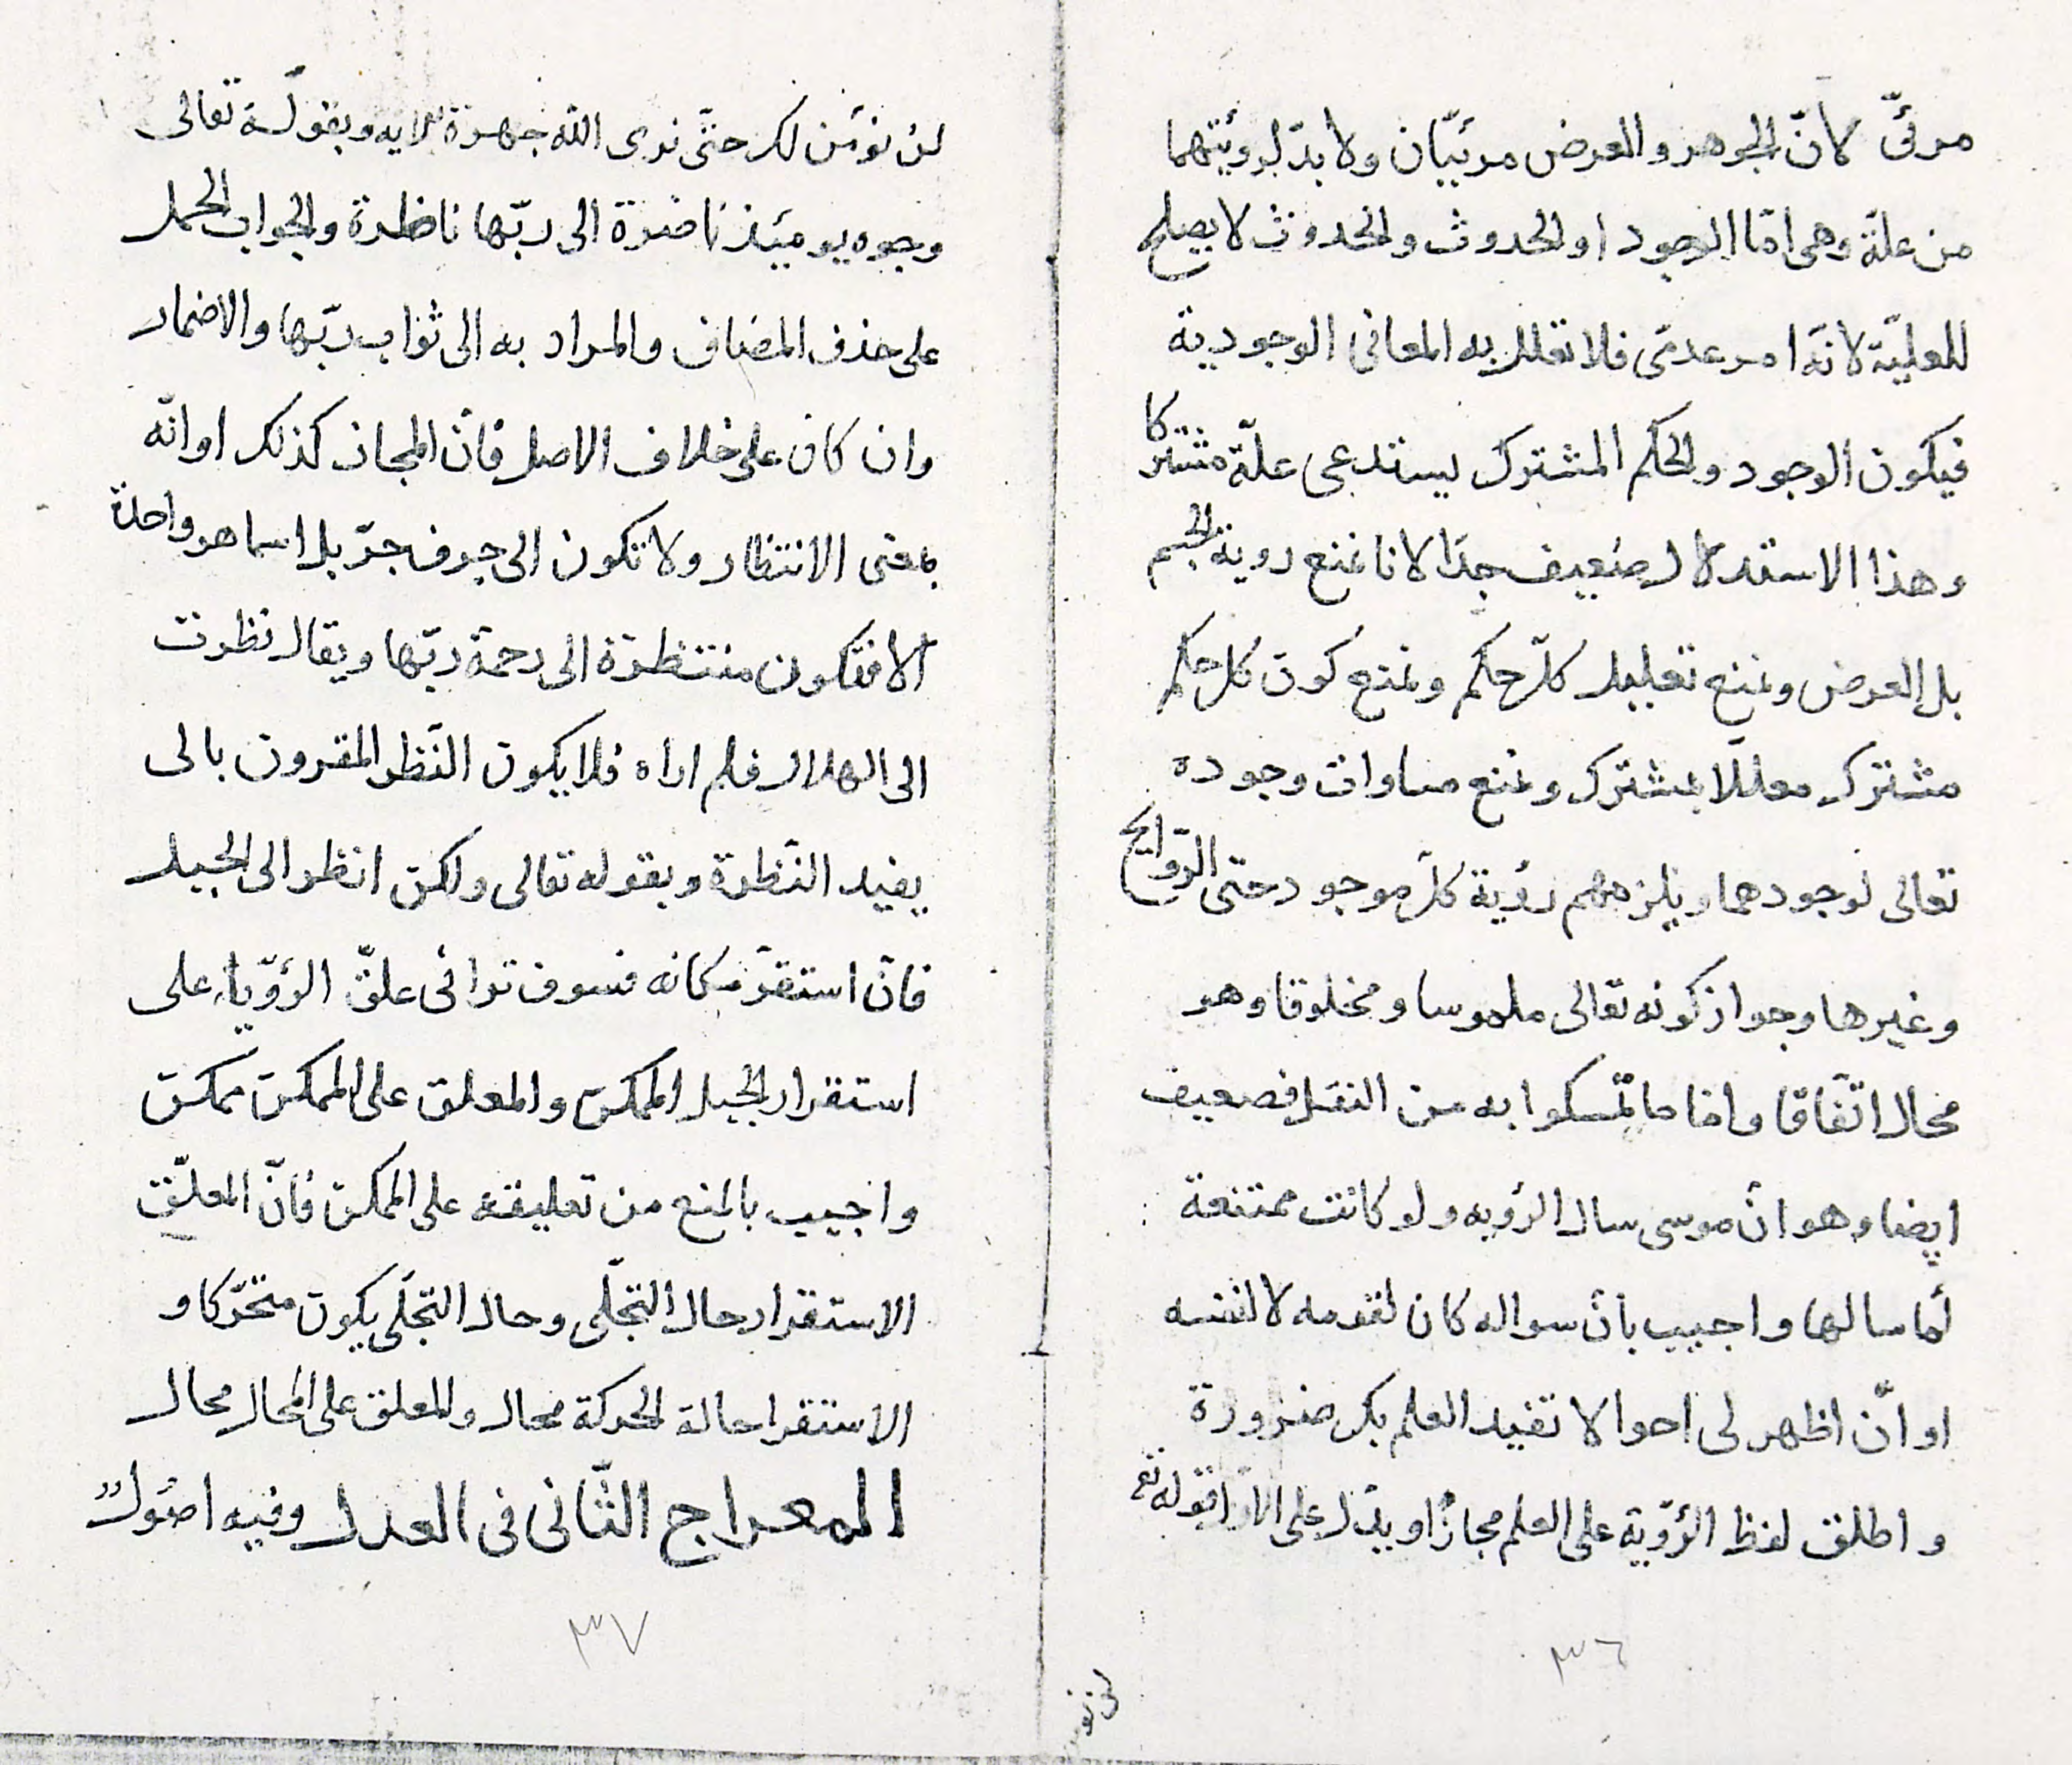 مرئىّ لانّ الجوهر والعرض مرئيّان ولا بدّ لرؤيتهما
من علّة وهى امّا الوجود او الحدوث والحدوث لا يصلح
للعليّة لانّه امر عدمىّ فلا تعلل به المعانى الوجودية
فيكون الوجود والحكم المشترك يستدعى علّة مشتركا
وهذا الاستدلال ضعيف جدّا لانا نمنع روية الجسم
بل العرض ونمنع تعليل كلّ حكم ونمنع كون كل حكم
مشترك معللا بمشترك ونمنع مساوات وجوده
تعالى لوجودهما ويلزمهم رؤية كلّ موجود حتى الرّوايح
وغيرها وجواز كونه تعالى ملموسا ومخلوقا وهو
محال اتّفاقا وامّا ما تمّسكوا به من النقل فضعيف
ايضا وهو انّ موسى سال الرؤيه ولو كانت ممتنعة
لما سالها واجيب بانّ سواله كان لقومه لا لنفسه
او انّ اظهر لى احوالا تفيد العلم بك ضرورة
واطلق لفظ الرّؤية على العلم مجازًا ويدّل على الاوّل قوله تعـ
لن نؤمن لك حتّى نرى اللّه جهرة الايه وبقولـه تعالى
وجوه يومئذ ناضرة الى ربّها ناظرة والجواب الحمل
على حذف المضاف والمراد به الى ثواب ربّها والاضمار
وان كان على خلاف الاصل فانّ المجاز كذلك او انّه
بمعنى الانتظار ولا تكون الى حرف جرّ بل اسما هو واحدة
الا فتكون منتظرة الى رحمة ربّها ويقال نظرت
الى الهلال فلم اراه فلا يكون النّظر المقرون بالى
يفيد النّظرة وبقوله تعالى ولكن انظر الى الجبل
فان استقرّ مكانه فسوف توانى علقّ الرؤّيا على
استقرار الجبل الممكن والمعلق على الممكن ممكن
واجيب بالمنع من تعليقه على الممكن فانّ المعلّق
الاستقرار حال التجلّى وحال التجلّى يكون متحّركا و
الاستقرا حالة الحركة محال والمعلق على المحال محال
المعراج الثّانى فى العدل وفيه اصول
٣٦
٣٧